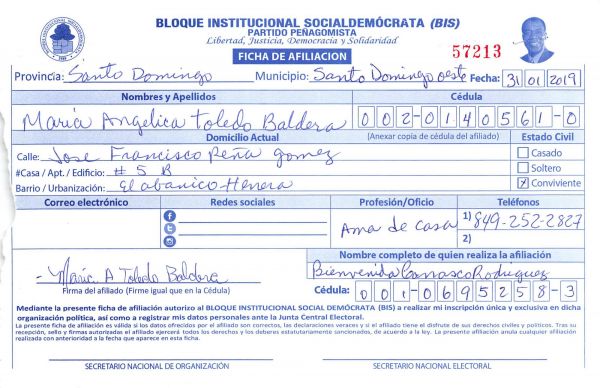 BLOQUE INSTITUCIONAL SOCIALDEMÓCRATA (BIS)
PARTIDO PEÑAGOMISTA
Libertad, Justicia, Democracia y Solidaridad
FICHA DE AFILIACION
57213
Provincia: Santo Domingo Municipio: Santo Domingo oeste Fecha: 31 01 2019
Nombres y Apellidos Cédula
María Angelica Toledo Baldera 002-0140561-0
Domicilio Actual (Anexar copia de cédula del afiliado) Estado Civil
Calle: Jose Francisco Peña gomez Casado
#Casa / Apt. / Edificio: # 5 B Soltero
Barrio / Urbanización: El abanico Herrera Conviviente
Correo electrónico Redes sociales Profesión/Oficio Teléfonos
Ama de casa 1) 849-252-2827
2)
Nombre completo de quien realiza la afiliación
Maria A Toledo Baldera Bienvenida Carrasco Rodriguez
Firma del afiliado (Firme igual que en la Cédula) Cédula: 001-0695258-3
Mediante la presente ficha de afiliación autorizo al BLOQUE INSTITUCIONAL SOCIAL DEMÓCRATA (BIS) a realizar mi inscripción única y exclusiva en dicha
organización política, así como a registrar mis datos personales ante la Junta Central Electoral.
La presente ficha de afiliación es válida si los datos ofrecidos por el afiliado son correctos, las declaraciones veraces y si el afiliado tiene el disfrute de sus derechos civiles y políticos. Tras su
recepción, sello y firmas autorizadas el afiliado ejercerá todos los derechos y los deberes estatutariamente sancionados, de acuerdo a la ley. La presente afiliación anula cualquier afiliación
realizada con anterioridad a la fecha que aparece en esta ficha.
SECRETARIO NACIONAL DE ORGANIZACIÓN SECRETARIO NACIONAL ELECTORAL